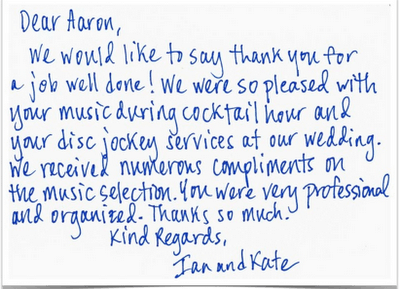 Dear Aaron,
We would like to say thank you for
a job well done! We were so pleased with
your music during cocktail hour and
your disc jockey services at our wedding.
We received numerous compliments on
the music selection. You were very professional
and organized. Thanks so much.
Kind Regards,
Ian and Kate